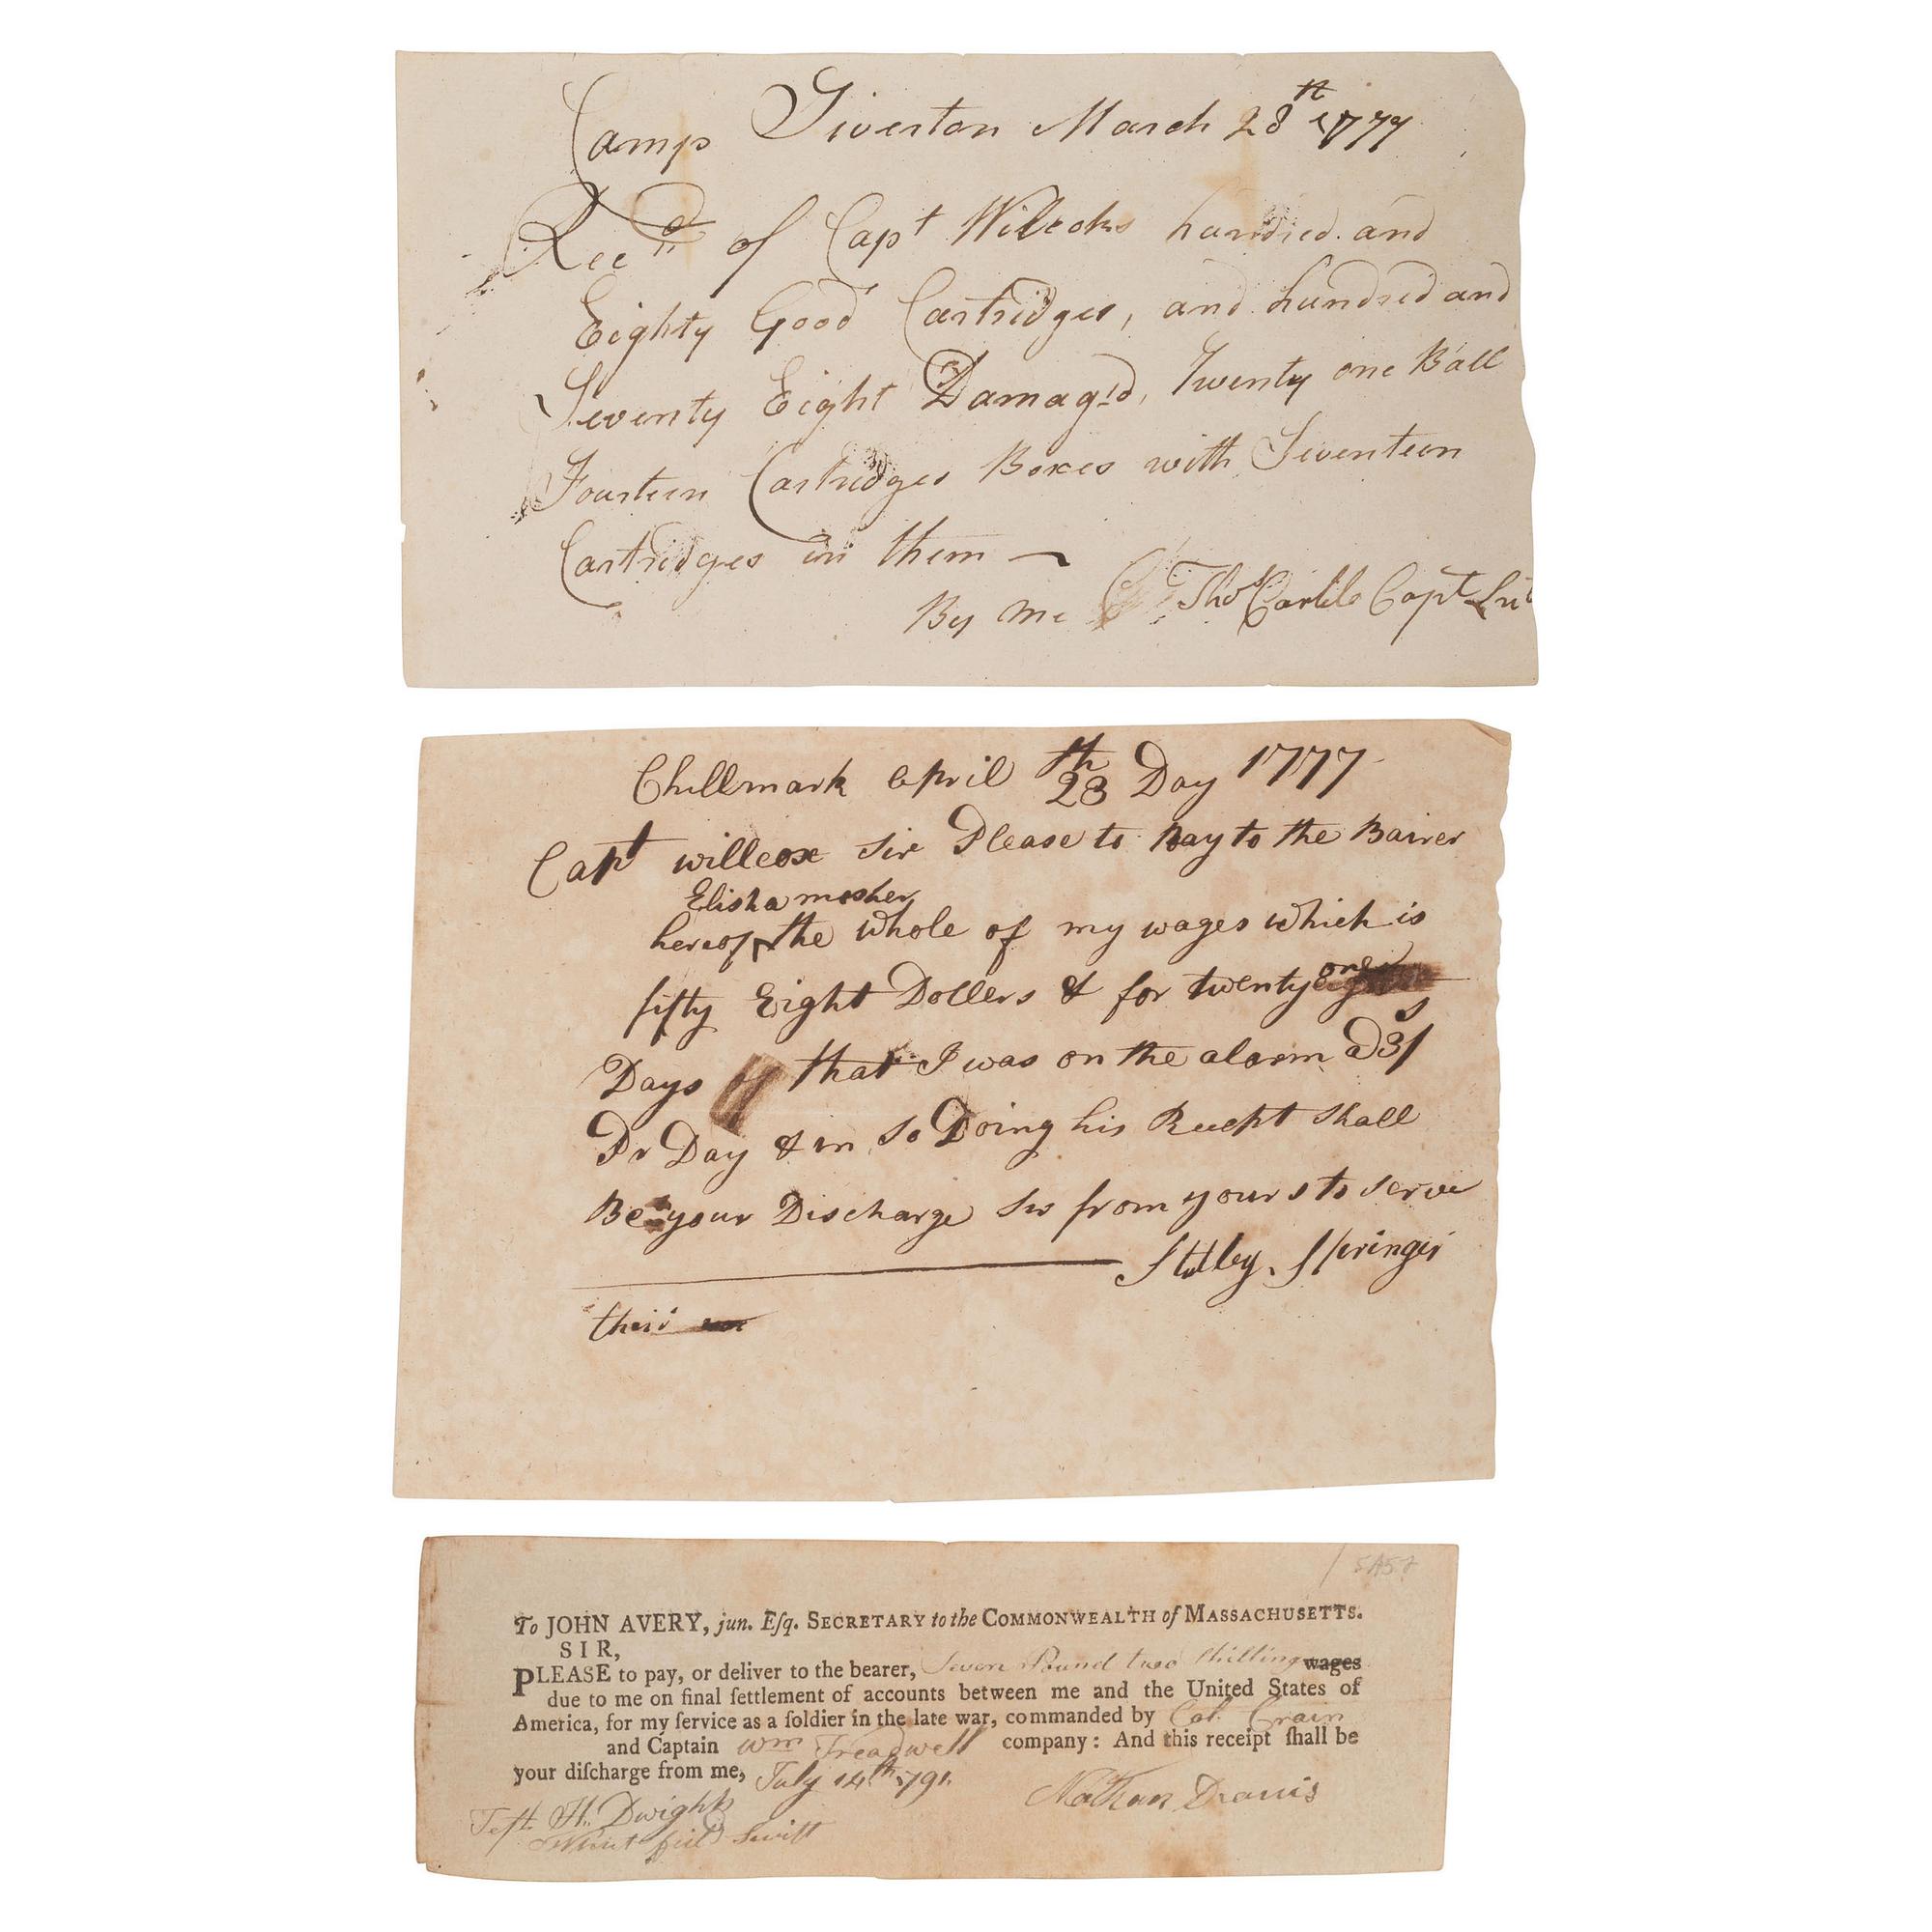 Camp Tiverton March 28th 1777
Recd of Capt Wilcoks hundred and
Eighty Good Cartridges, and hundred and
Seventy Eight Damagd, Twenty one Ball
Fourteen Cartridges Boxes with Seventeen
Cartridges in them —
By me Thos Carlile Capt Lut
Chillmark april 23th Day 1777
Capt willcox sir Please to Pay to the Bairer
Elisha mosher
hereof the whole of my wages which is
fifty Eight Dollers & for twenty one
Days that I was on the alarm a 3/s
Pr Day & in so Doing his Recept shall
Be your Discharge sir from yours to serve
Springer
their
5A57
To JOHN AVERY, jun. Eſq. SECRETARY to the COMMONWEALTH of MASSACHUSETTS.
SIR,
PLEASE to pay, or deliver to the bearer, Seven Pound two Shilling wages
due to me on final ſettlement of accounts between me and the United States of
America, for my ſervice as a ſoldier in the late war, commanded by Col. Crain
and Captain Wm Treadwell company: And this receipt ſhall be
your diſcharge from me, July 14th 1791. Nathan Davis
Test. H. Dwight
Swift